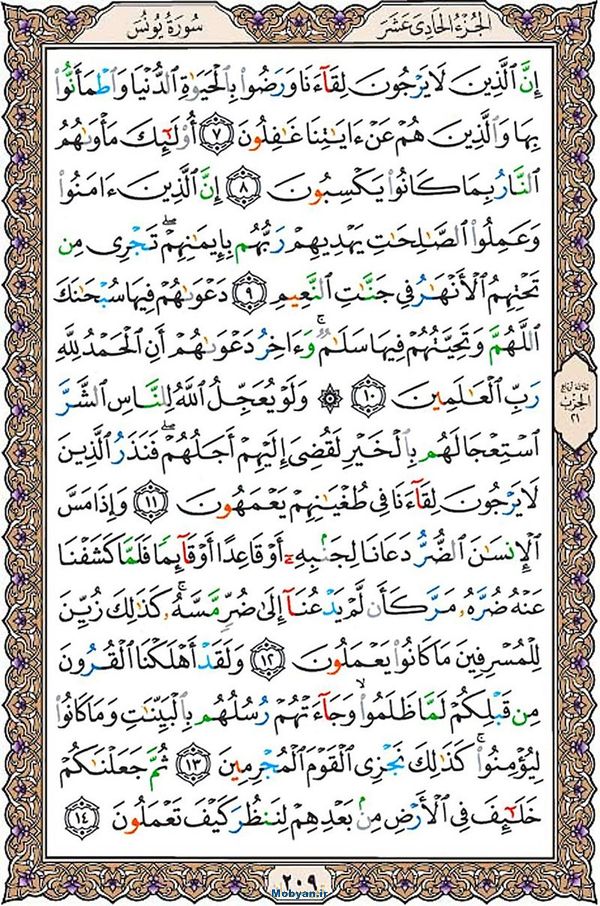 الجُزءُ الحَادِى عَشَر
سُورَةُ يُونُسَ
إِنَّ ٱلَّذِينَ لَا يَرْجُونَ لِقَآءَنَا وَرَضُوا۟ بِٱلْحَيَوٰةِ ٱلدُّنْيَا وَٱطْمَأَنُّوا۟
بِهَا وَٱلَّذِينَ هُمْ عَنْ ءَايَـٰتِنَا غَـٰفِلُونَ ٧ أُو۟لَـٰٓئِكَ مَأْوَىٰهُمُ
ٱلنَّارُ بِمَا كَانُوا۟ يَكْسِبُونَ ٨ إِنَّ ٱلَّذِينَ ءَامَنُوا۟
وَعَمِلُوا۟ ٱلصَّـٰلِحَـٰتِ يَهْدِيهِمْ رَبُّهُم بِإِيمَـٰنِهِمْ ۖ تَجْرِى مِن
تَحْتِهِمُ ٱلْأَنْهَـٰرُ فِى جَنَّـٰتِ ٱلنَّعِيمِ ٩ دَعْوَىٰهُمْ فِيهَا سُبْحَـٰنَكَ
ٱللَّهُمَّ وَتَحِيَّتُهُمْ فِيهَا سَلَـٰمٌ ۚ وَءَاخِرُ دَعْوَىٰهُمْ أَنِ ٱلْحَمْدُ لِلَّهِ
رَبِّ ٱلْعَـٰلَمِينَ ١٠ ۞ وَلَوْ يُعَجِّلُ ٱللَّهُ لِلنَّاسِ ٱلشَّرَّ
ٱسْتِعْجَالَهُم بِٱلْخَيْرِ لَقُضِىَ إِلَيْهِمْ أَجَلُهُمْ ۖ فَنَذَرُ ٱلَّذِينَ
لَا يَرْجُونَ لِقَآءَنَا فِى طُغْيَـٰنِهِمْ يَعْمَهُونَ ١١ وَإِذَا مَسَّ
ٱلْإِنسَـٰنَ ٱلضُّرُّ دَعَانَا لِجَنۢبِهِۦٓ أَوْ قَاعِدًا أَوْ قَآئِمًا فَلَمَّا كَشَفْنَا
عَنْهُ ضُرَّهُۥ مَرَّ كَأَن لَّمْ يَدْعُنَآ إِلَىٰ ضُرٍّ مَّسَّهُۥ ۚ كَذَٰلِكَ زُيِّنَ
لِلْمُسْرِفِينَ مَا كَانُوا۟ يَعْمَلُونَ ١٢ وَلَقَدْ أَهْلَكْنَا ٱلْقُرُونَ
مِن قَبْلِكُمْ لَمَّا ظَلَمُوا۟ ۙ وَجَآءَتْهُمْ رُسُلُهُم بِٱلْبَيِّنَـٰتِ وَمَا كَانُوا۟
لِيُؤْمِنُوا۟ ۚ كَذَٰلِكَ نَجْزِى ٱلْقَوْمَ ٱلْمُجْرِمِينَ ١٣ ثُمَّ جَعَلْنَـٰكُمْ
خَلَـٰٓئِفَ فِى ٱلْأَرْضِ مِنۢ بَعْدِهِمْ لِنَنظُرَ كَيْفَ تَعْمَلُونَ ١٤
الحزب
٢١
٢٠٩
Mobyan.ir